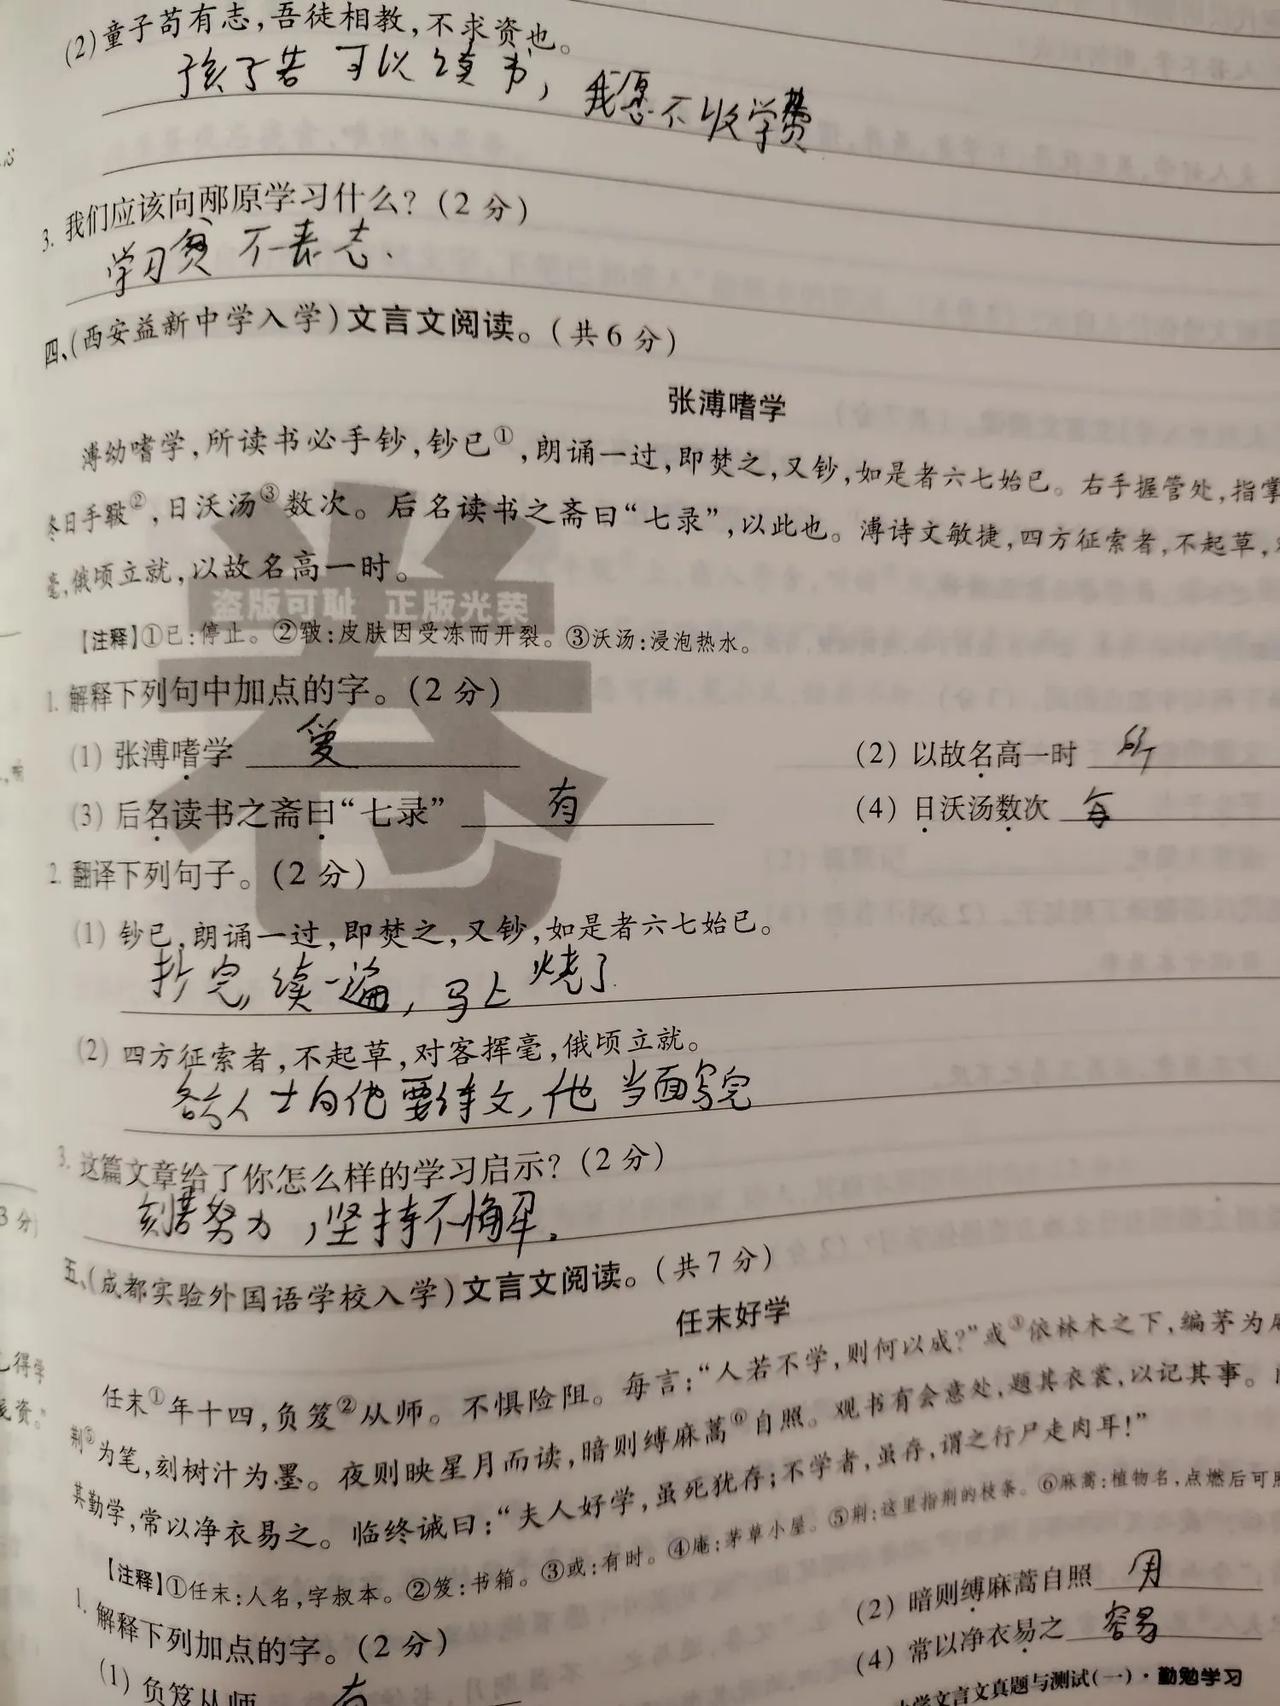 (2)童子苟有志,吾徒相教,不求资也。
孩子若可以读书,我愿不收学费
3. 我们应该向邴原学习什么?(2分)
学习贫不丧志.
四、(西安益新中学入学)文言文阅读。(共6分)
张溥嗜学
溥幼嗜学,所读书必手钞,钞已①,朗诵一过,即焚之,又钞,如是者六七始已。右手握管处,指掌
冬日手皲②,日沃汤③数次。后名读书之斋曰“七录”,以此也。溥诗文敏捷,四方征索者,不起草,
毫,俄顷立就,以故名高一时。
盗版可耻 正版光荣
卷
【注释】①已:停止。②皲:皮肤因受冻而开裂。③沃汤:浸泡热水。
1. 解释下列句中加点的字。(2分)
(1) 张溥嗜学 爱
(2) 以故名高一时 所
(3) 后名读书之斋曰“七录” 有
(4) 日沃汤数次 每
2. 翻译下列句子。(2分)
(1) 钞已,朗诵一过,即焚之,又钞,如是者六七始已。
抄完,读一遍,马上烧了
(2) 四方征索者,不起草,对客挥毫,俄顷立就。
各方人士向他要诗文,他当面写完
3. 这篇文章给了你怎么样的学习启示?(2分)
刻苦努力,坚持不懈。
3分)
五、(成都实验外国语学校入学)文言文阅读。(共7分)
任末好学
任末①年十四,负笈②从师。不惧险阻。每言:“人若不学,则何以成?”或③依林木之下,编茅为
荆⑤为笔,刻树汁为墨。夜则映星月而读,暗则缚麻蒿⑥自照。观书有会意处,题其衣裳,以记其事。
其勤学,常以净衣易之。临终诫曰:“夫人好学,虽死犹存;不学者,虽存,谓之行尸走肉耳!”
【注释】①任末:人名,字叔本。②笈:书箱。③或:有时。④庵:茅草小屋。⑤荆:这里指荆的枝条。⑥麻蒿:植物名,点燃后可照
1. 解释下列加点的字。(2分)
(2) 暗则缚麻蒿自照 用
(1) 负笈从师 有
(4) 常以净衣易之 容易
小学文言文真题与测试(一)·勤勉学习